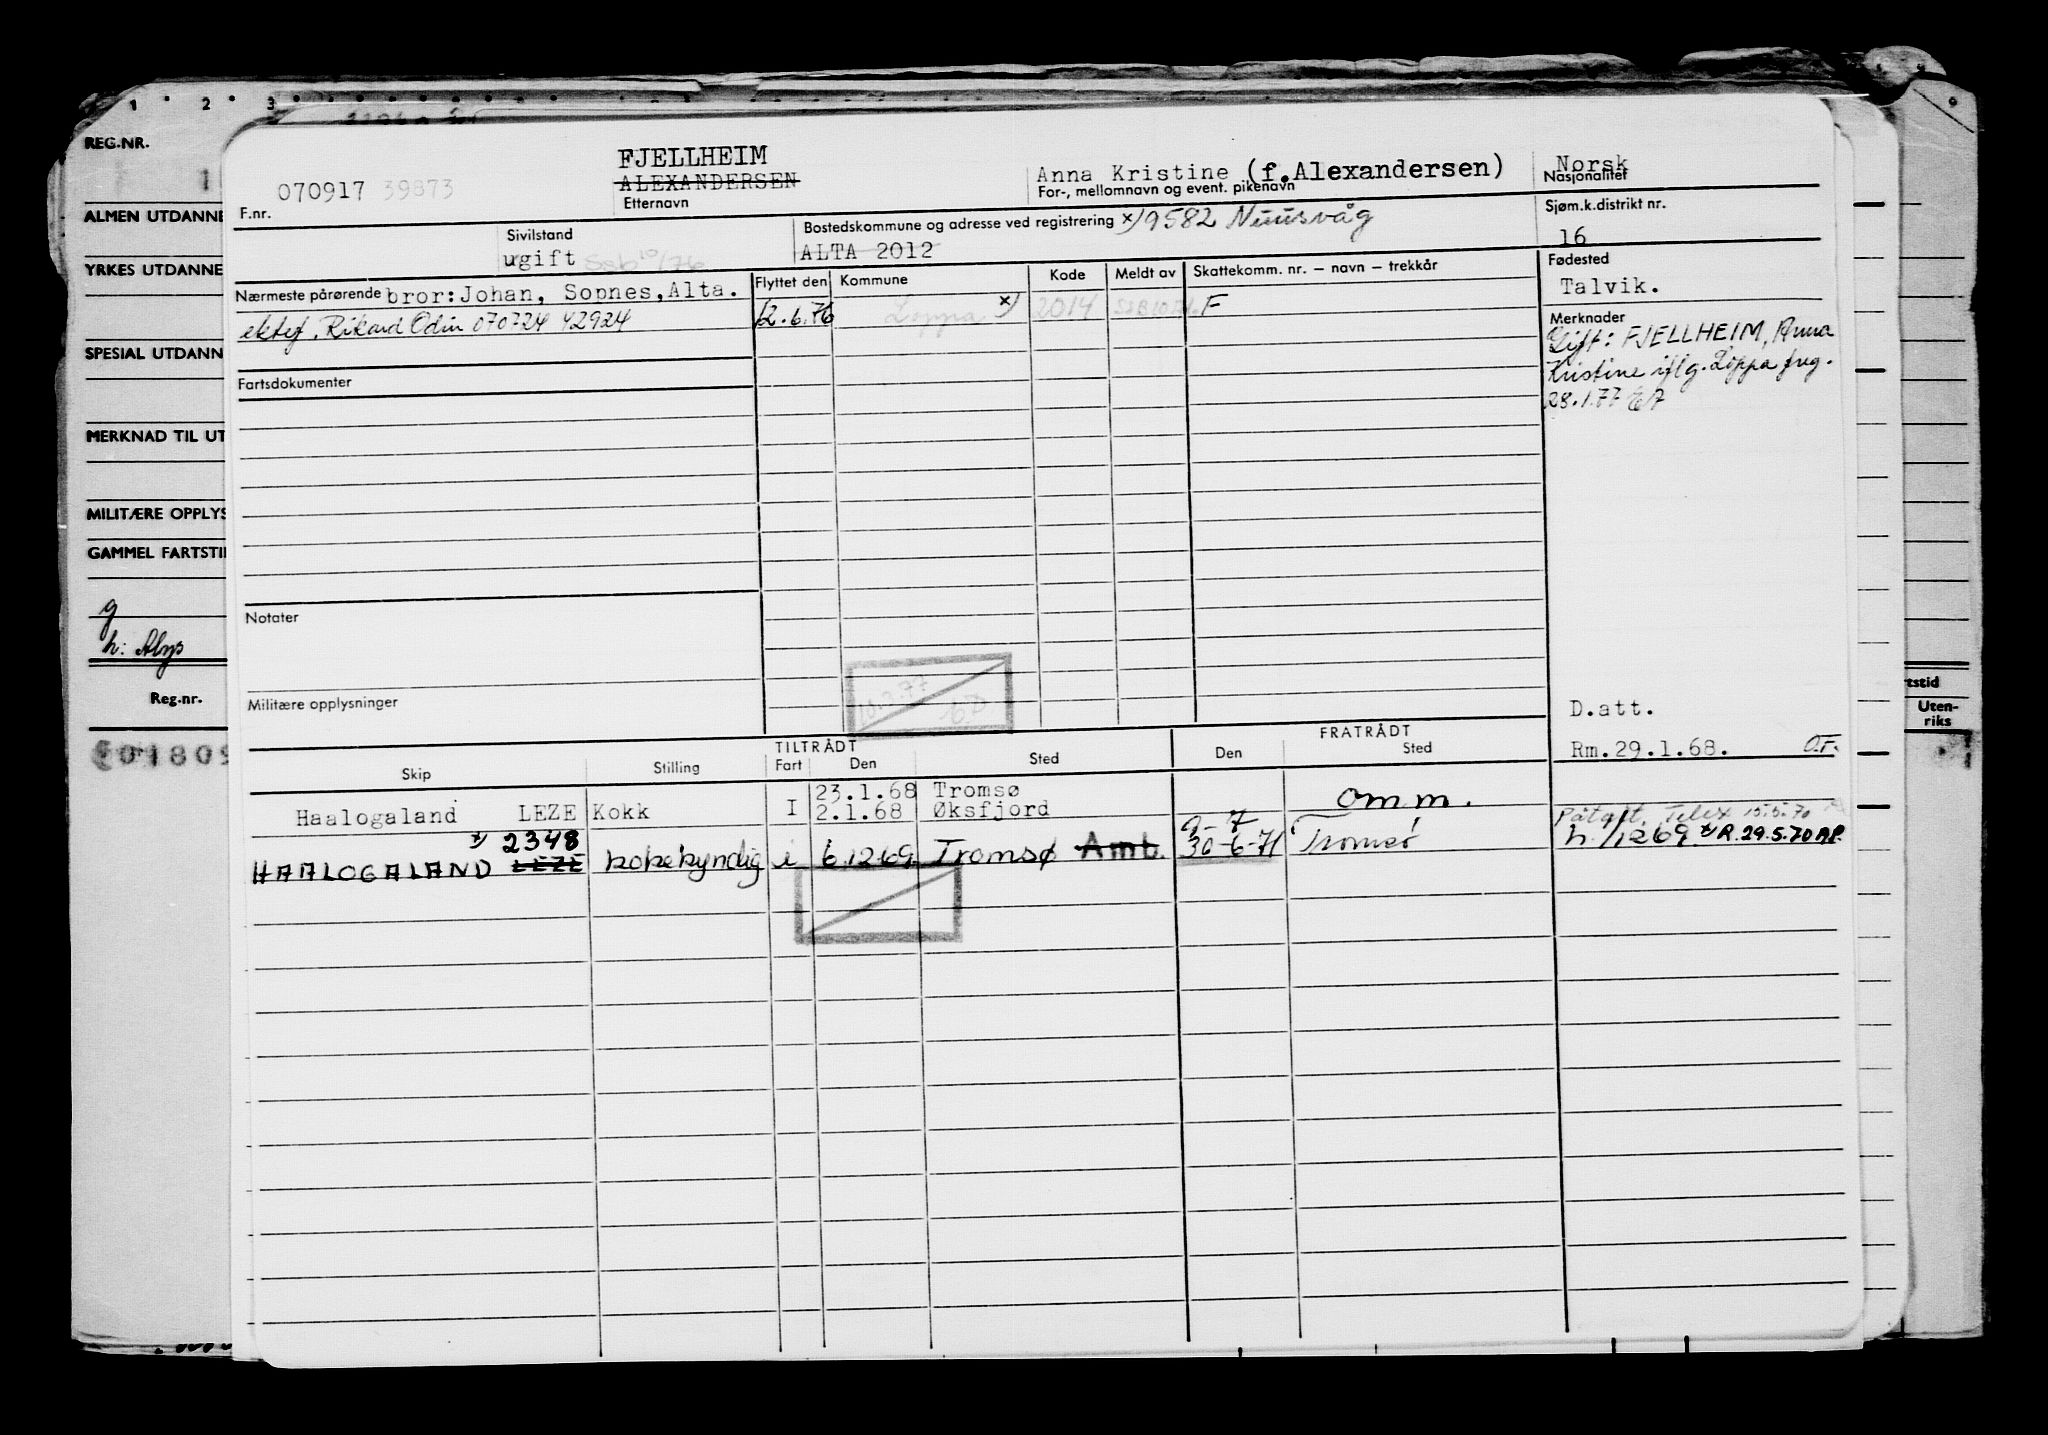 1 2 3
REG.NR.
ALMEN UTDANNE
YRKES UTDANNE
SPESIAL UTDANN
MERKNAD TIL UT
MILITÆRE OPPLYS
GAMMEL FARTSTI
g
h: Alys
Reg.nr.
rtstid
Uten-
riks
FJELLHEIM
ALEXANDERSEN
Etternavn
070917 39873
F.nr.
Anna Kristine (f.Alexandersen)
For-, mellomnavn og event. pikenavn
Norsk
Nasjonalitet
Sivilstand
ugift Ssb 10/76
Bostedskommune og adresse ved registrering x) 9582 Nuusvåg
ALTA 2012
Sjøm.k.distrikt nr.
16
Nærmeste pårørende bror: Johan, Sopnes, Alta.
ektef. Rikard Odin 070724 42924
Flyttet den Kommune Kode Meldt av Skattekomm. nr. – navn – trekkår
12.6.76 Loppa x) 2014 F
Fødested
Talvik.
Merknader
Gift: FJELLHEIM, Anna
Kristine iflg. Loppa freg.
28.1.77
Fartsdokumenter
Notater
Militære opplysninger
D.att.
Rm.29.1.68.
TILTRÅDT FRATRÅDT
Skip Stilling Fart Den Sted Den Sted
23.1.68 Tromsø
Haalogaland LEZE Kokk I 2.1.68 Øksfjord omm.
Påtgft. Telex 15.5.70
x) 2348 9-7
HAALOGALAND LEZE kokekyndig i 6.12.69 Tromsø Amb. 30-6-71 Tromsø h. 1269 x) R.29.5.70 AP.